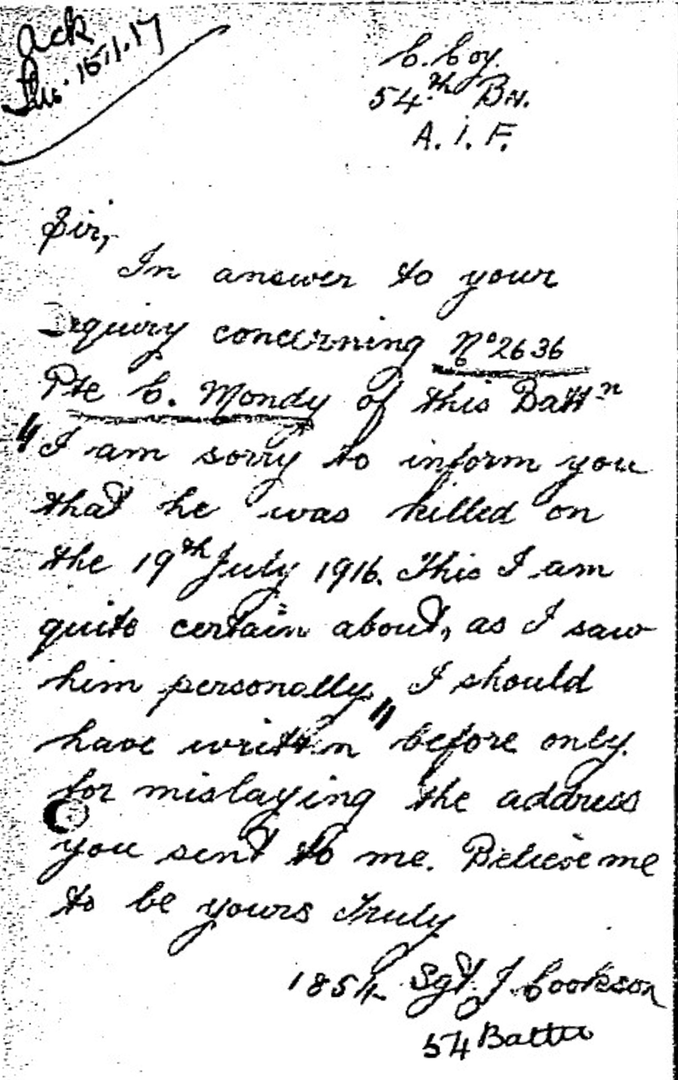 Ack
15.1.17
C. Coy.
54th Bn.
A. I. F.
Sir,
In answer to your
Enquiry concerning No 2636
Pte C. Mondy of this Battn
"I am sorry to inform you
that he was killed on
the 19th July 1916. This I am
quite certain about, as I saw
him personally" I should
have written before only
for mislaying the address
you sent to me. Believe me
to be yours truly
1854 Sgt. J. Cookson
54 Battn